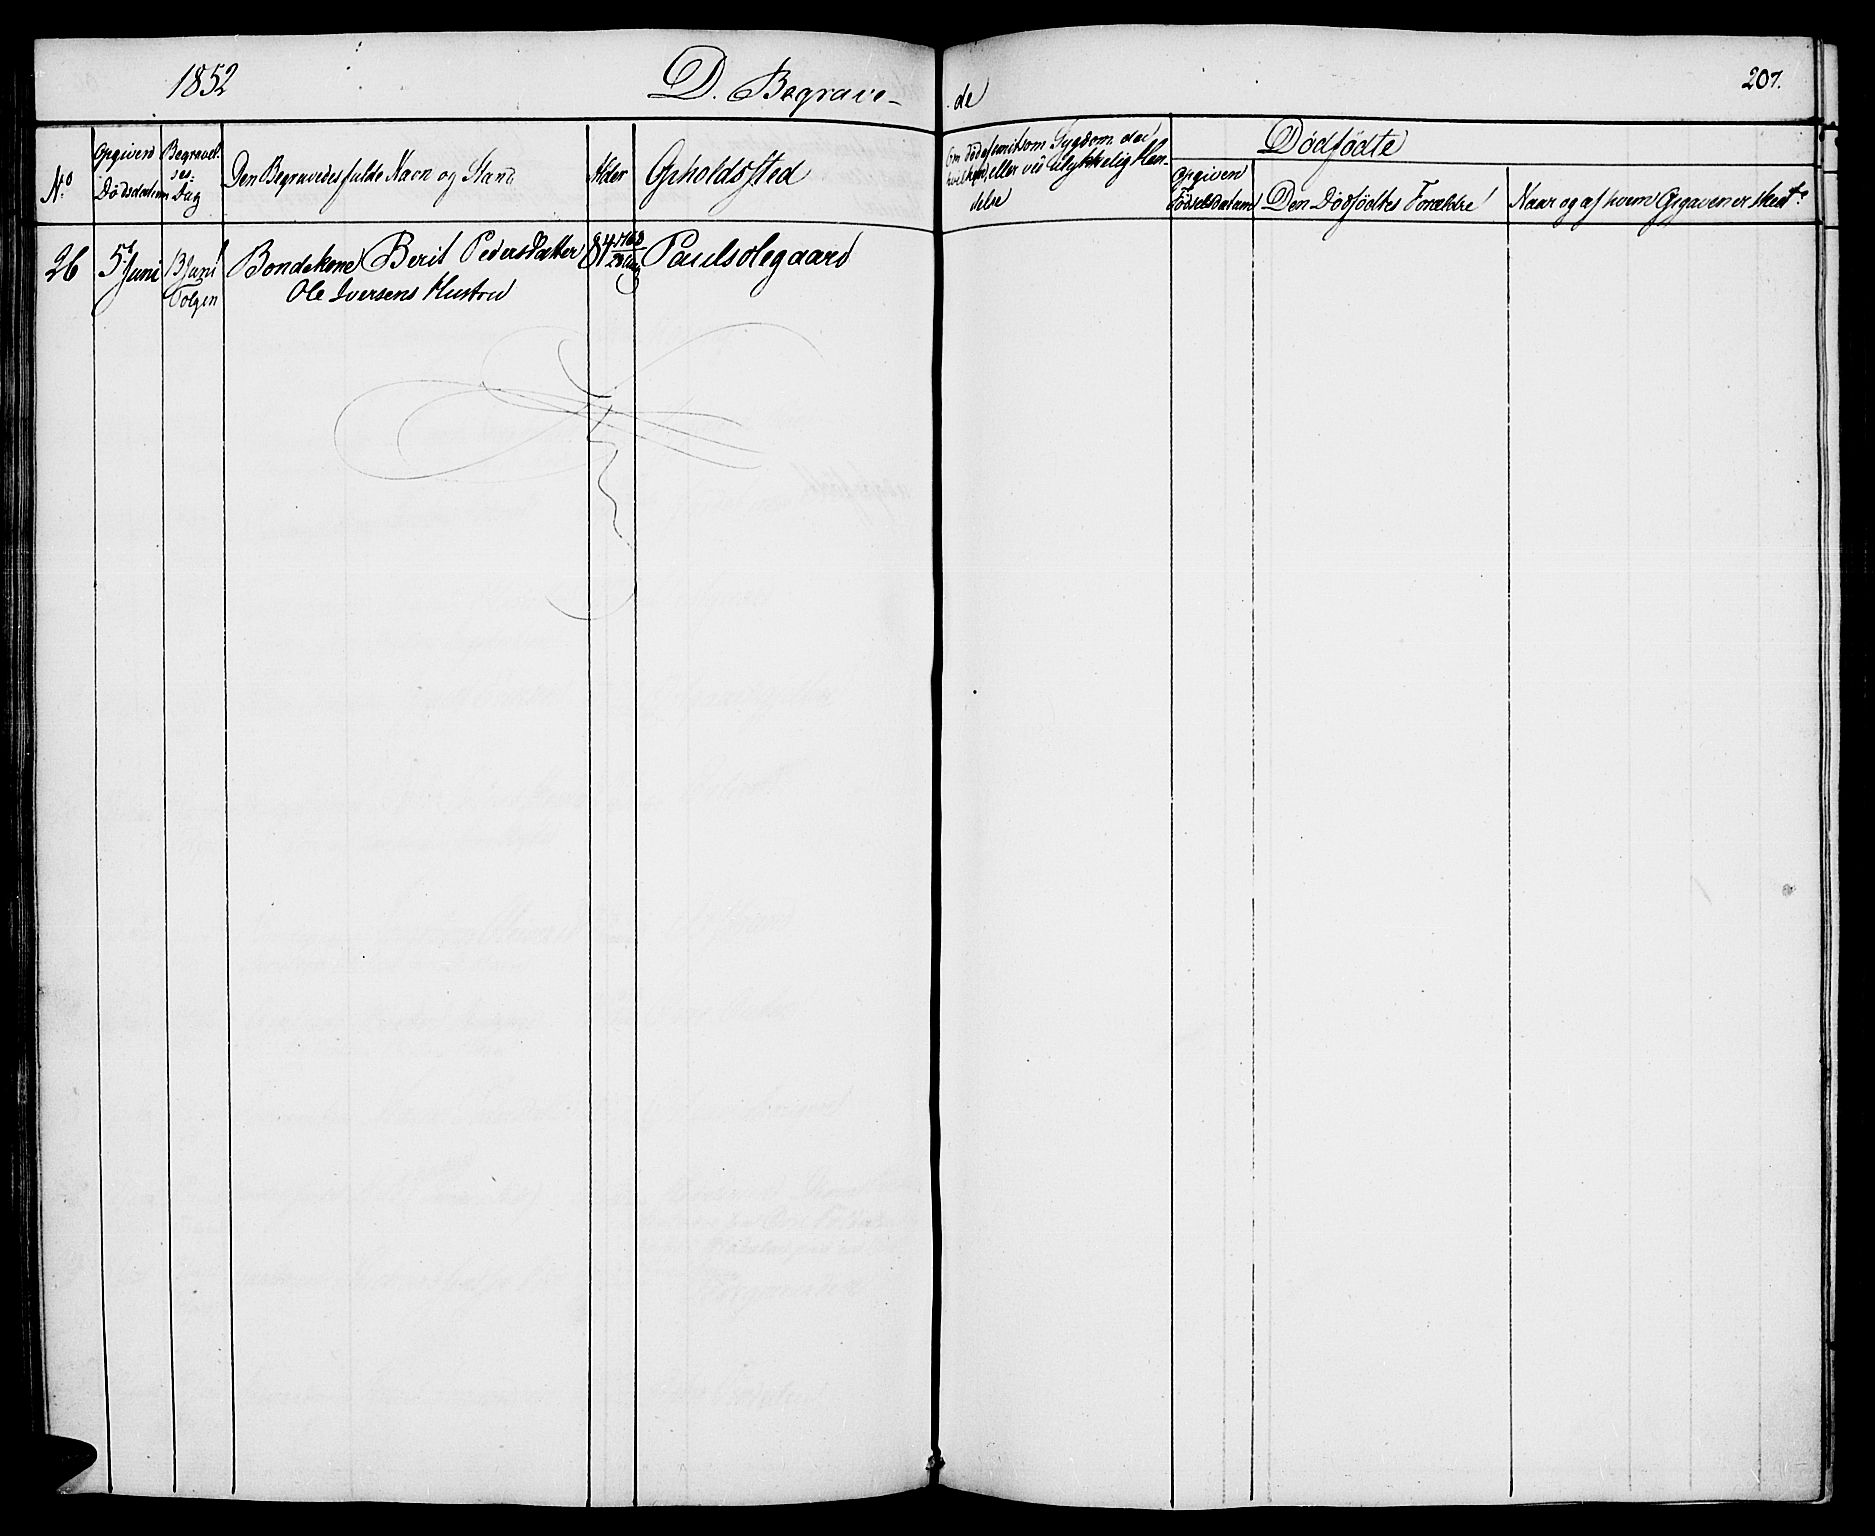 1852
D. Begrave-
de
207.
No
Opgiven Dødsdatum
Begravel-
ses
Dag
Den Begravedes fulde Navn og Stand
Alder
Opholdssted
Om Døde af smitsom Sygdom, der
eller ved ulykkelig Hæn-
delse
Dødfødte
Opgiven
Fødselsdatum
Den Dødfødtes Forældre
Naar og af hvem Opgaven er skeet?
26
5 Juni
13 Juni
Tolgen
Bondekone Berit Pedersdatter
Ole Iversens Hustru
84
Paulsølegaard